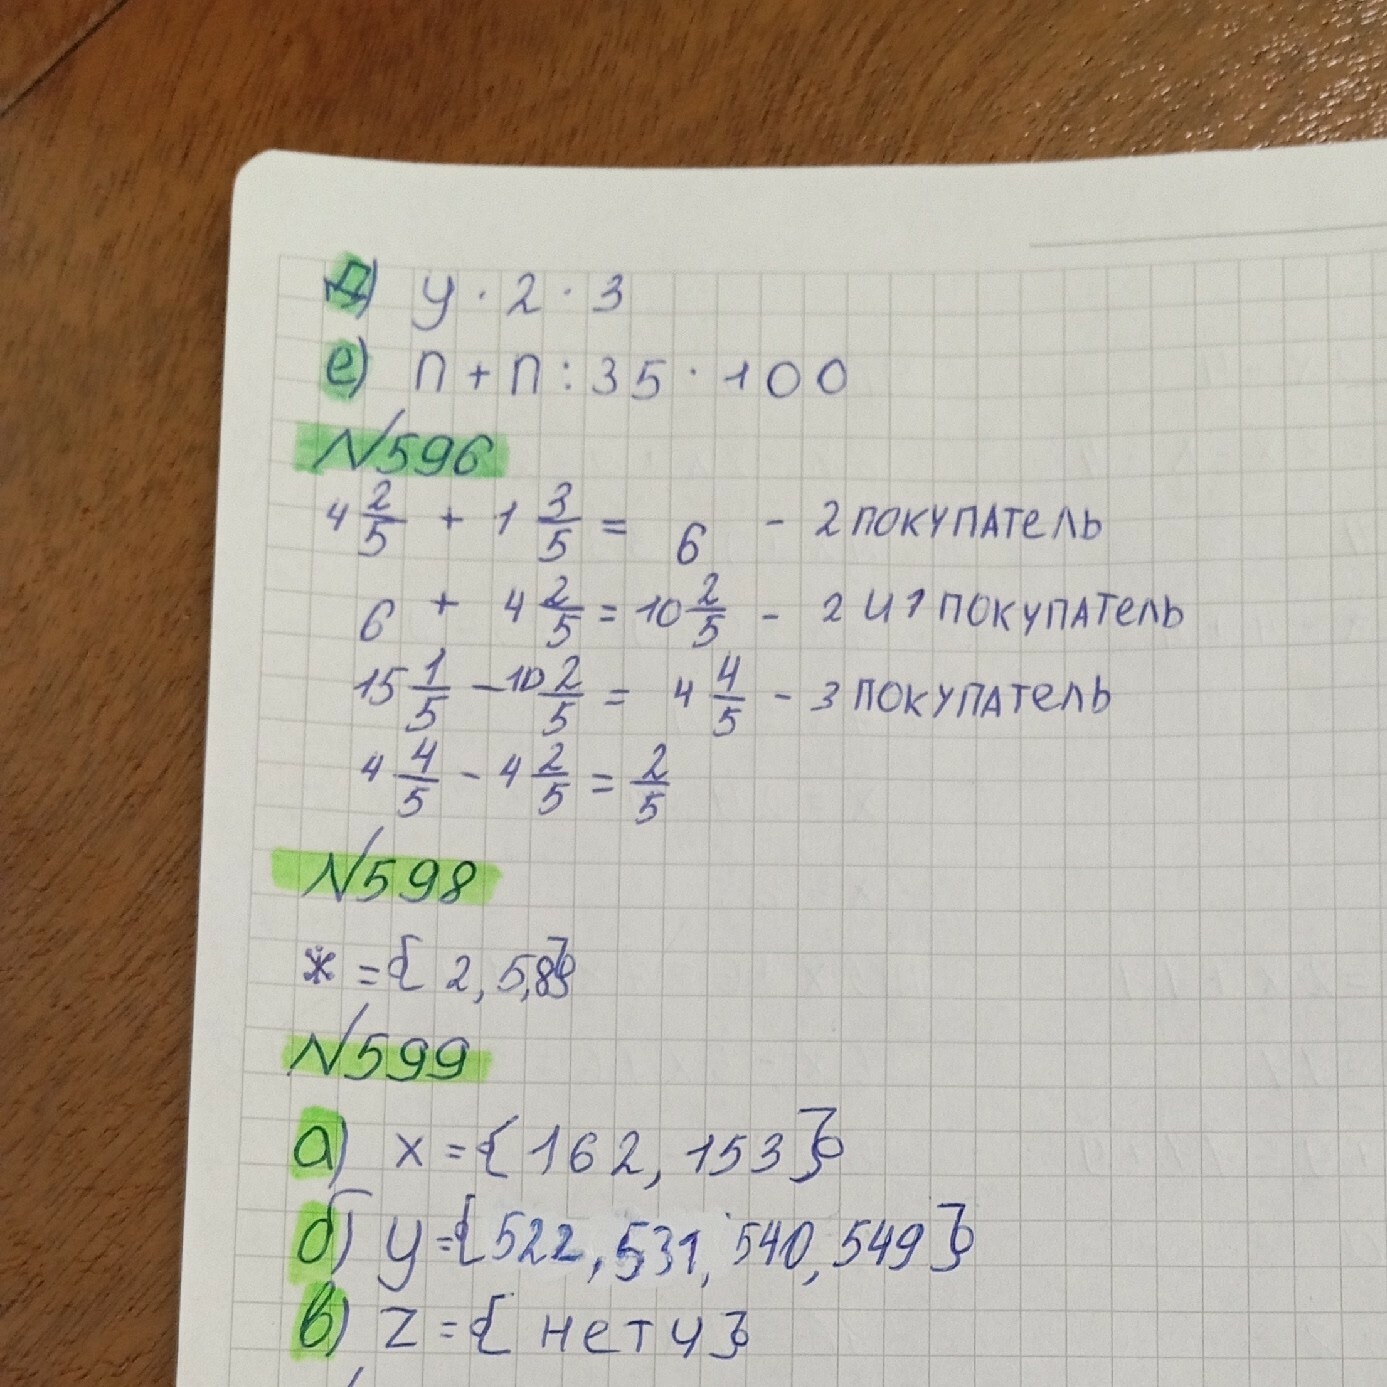 д) y · 2 · 3
е) n + n : 35 · 100
№596
4 2/5 + 1 3/5 = 6 - 2 покупатель
6 + 4 2/5 = 10 2/5 - 2 и 1 покупатель
15 1/5 - 10 2/5 = 4 4/5 - 3 покупатель
4 4/5 - 4 2/5 = 2/5
№598
* = { 2, 5, 8}
№599
а) x = { 162, 153 }
б) y = {522, 531, 540, 549 }
в) z = { нету }